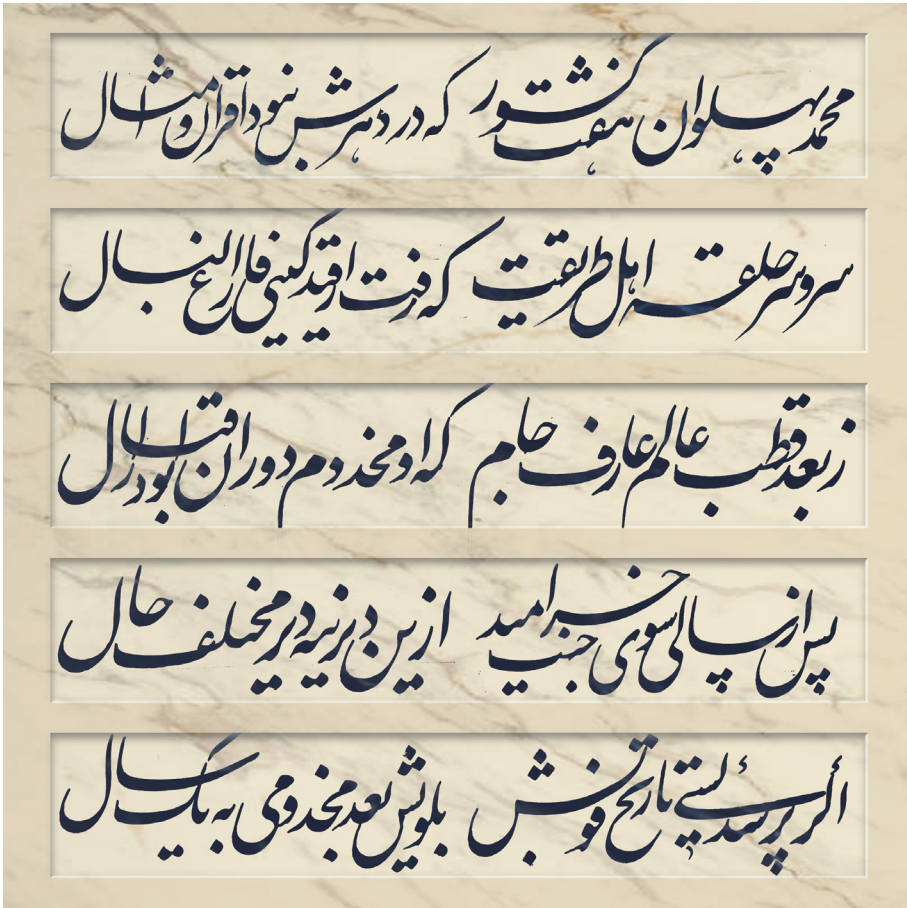 محمد پهلوان هفت کشور که در دهرش نبود اقران و امثال
سر و سر حلقه اهل طریقت که رفت از قید گیتی فارغ البال
ز بعد قطب عالم عارف جام که او مخدوم دوران بود در اقبال
پس از سالی سوی جنت خرامید ازین دیرینه دیر مختلف حال
اگر پرسد کسی تاریخ فوتش بگویش بعد مخدومی به یک سال